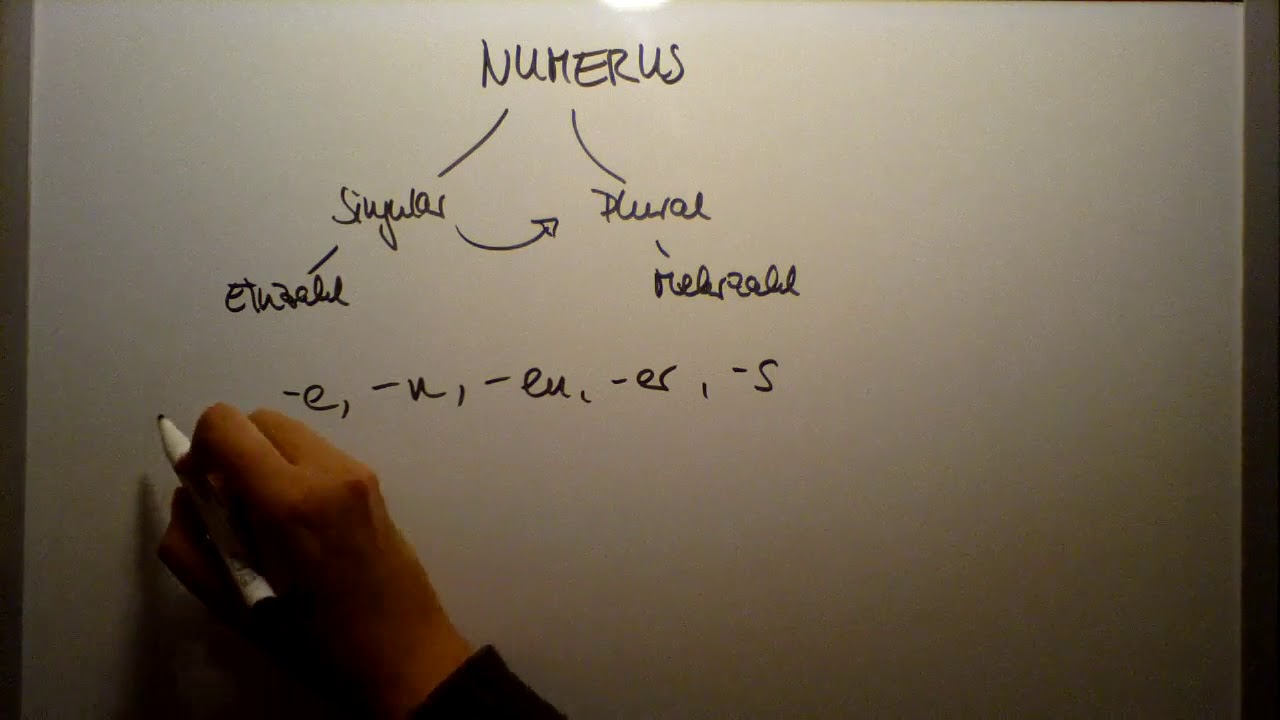 NUMERUS
Singular Plural
Einzahl Mehrzahl
-e, -n, -en, -er, -s